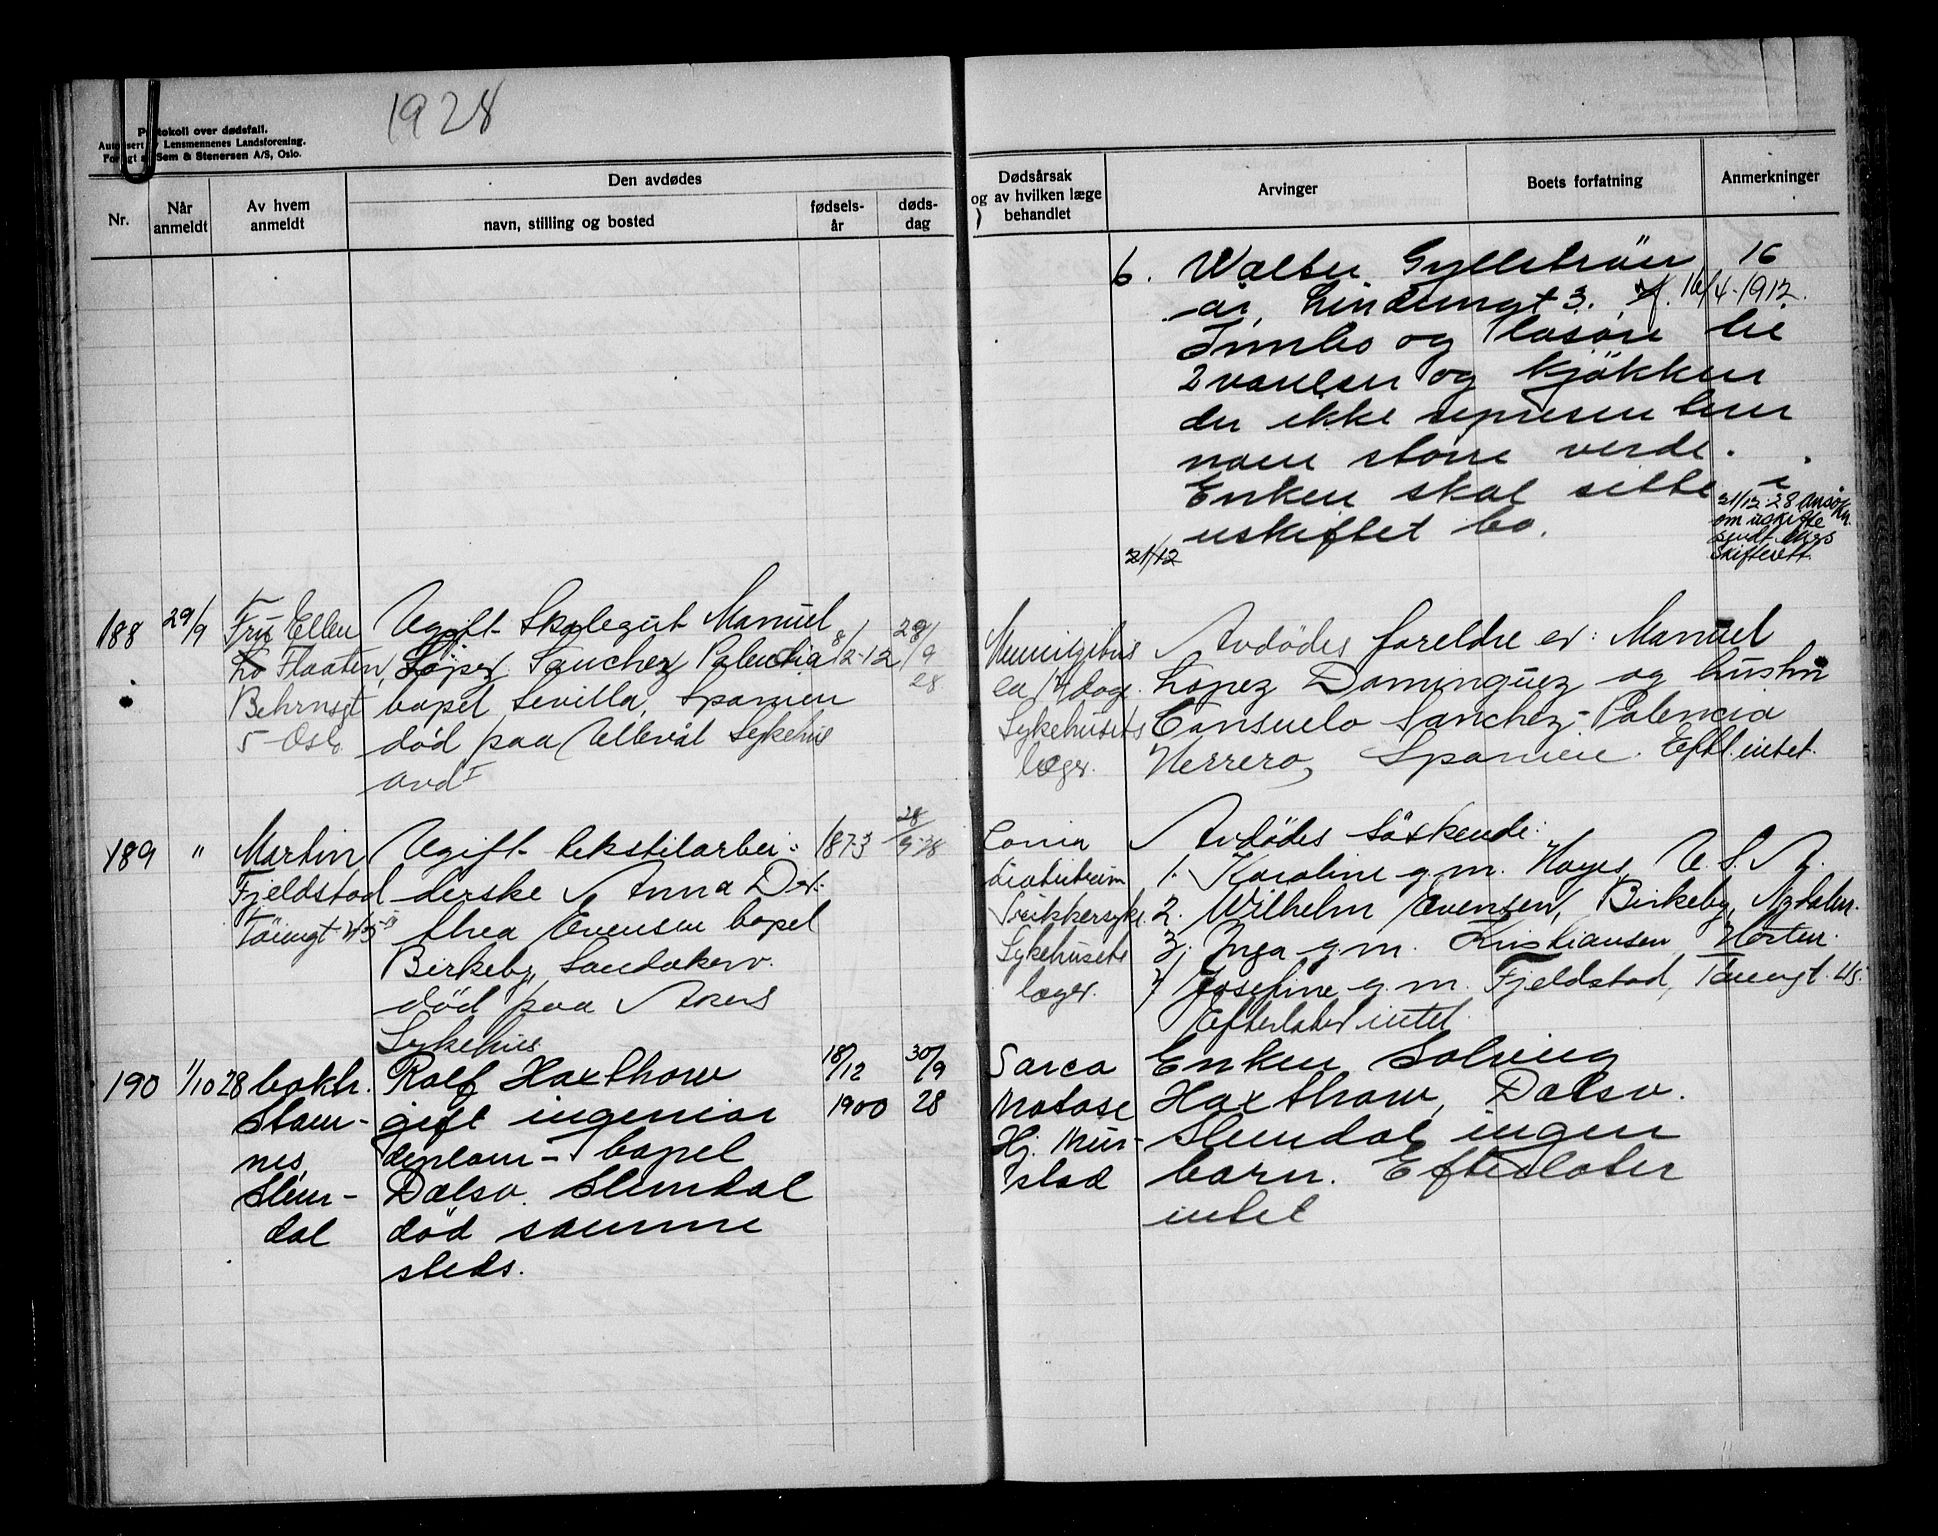 1928
Protokoll over dødsfall.
Autorisert av Lensmennenes Landsforening.
Forlagt av Sem & Stenersen A/S, Oslo.
Nr.
Når anmeldt
Av hvem anmeldt
Den avdødes
navn, stilling og bosted
fødselsår
dødsdag
Dødsårsak og av hvilken læge behandlet
Arvinger
Boets forfatning
Anmerkninger
6. Walter Gyllstrøm 16
år, Lindemgt 3. f. 16/4-1912.
Innbo og løsøre til
2 værelser og kjøkken
der ikke representerer
noen større verdi.
Enken skal sitte i
uskiftet bo.
21/12
21/12-28 Ansøkn.
om uskifte
sendt
Skifterett.
188 29/9 Fru Ellen
Lo Flaaten,
Behrnsgt
5 Oslo
Ugift Skolegut Manuel
Lopez Sanchez Palencia
bopel Sevilla, Spanien
død paa Ullevål Sykehus
avd I
8/12-12
28/9
28
Meningitis
ca 14 dage.
Sykehusets
læger.
Avdødes foreldre er: Manuel
Lopez Dominguez og hustru
Consuelo Sanchez-Palencia
Herrero, Spanien. Eftl. intet.
189 " Martin
Fjeldstad
Tøiengt 45
Ugift tekstilarbei-
derske Anna Dor-
thea Evensen bopel
Birkeby, Sandakerv.
død paa Akers
Sykehus
1873
28/9-28
Coma
diabeticum
Sukkersyke
Sykehusets
læger.
Avdødes Søskende:
1. Karoline g.m. Hayes, U.S.A.
2. Wilhelm Evensen, Birkeby, Nydalen.
3. Inga g.m. Kristiansen, Horten.
4 Josefine g.m. Fjeldstad, Tøiengt. 45.
Efterlater intet
190 1/10 28 bokh.
Stam-
nes,
Slem-
dal
Rolf Haxthow
gift ingeniør
diplom- bopel
Dalsv. Slemdal
død samme
steds.
18/12
1900
30/9
28
Sarco
matose
Hj. Mur-
stad
Enken Solveig
Haxthow, Dalsv.
Slemdal, ingen
barn. Efterlater
intet